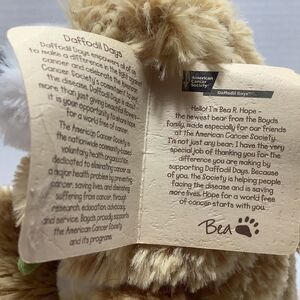 Daffodil Days
Daffodil Days empowers all of us
to make a difference in the fight against
cancer and celebrate the American
Cancer Society's commitment to
more than just giving beautiful flowers—
it is your opportunity to share hope
for a world free of cancer.
The American Cancer Society
is the nationwide community-based
voluntary health organization
dedicated to eliminating cancer as
a major health problem by preventing
cancer, saving lives, and diminishing
suffering from cancer, through
research, education, advocacy,
and service. Boyds proudly supports
the American Cancer Society
and its programs.
American
Cancer
Society
Daffodil Days
Hello! I'm Bea R. Hope -
the newest bear from the Boyds
Family, made especially for our friends
at The American Cancer Society.
I'm not just any bear: I have the very
special job of thanking you for the
difference you are making by
supporting Daffodil Days. Because
of you, the Society is helping people
facing the disease and is saving
more lives. Hope for a world free
of cancer starts with you.
Bea